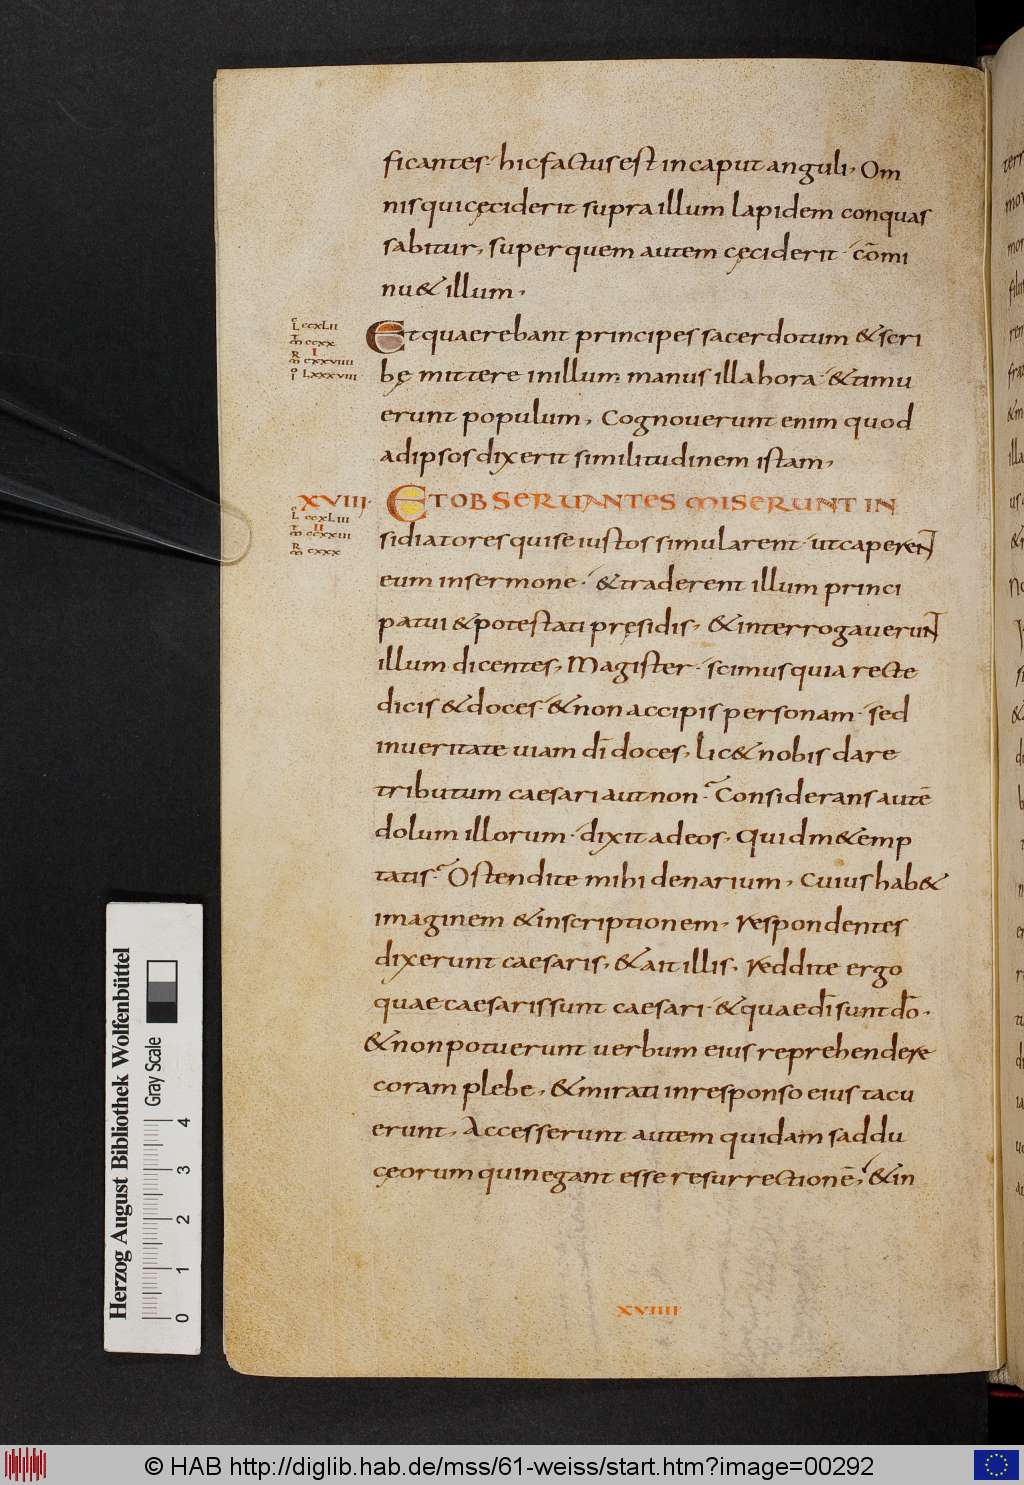 ficantes· hic factus est in caput anguli, Om
nis qui cęciderit supra illum lapidem conquas
sabitur, super quem autem cęciderit· cōmi
nu& illum,
L ccxLII
M ccxx
I
MR cxxviiii
IO Lxxxviii
Et quaerebant principes sacerdotum & scri
bę mittere in illum manus illa hora· & timu
erunt populum, Cognoverunt enim quod
ad ipsos dixerit similitudinem istam,
XVIII· ET OBSERUANTES MISERUNT IN
L ccxLIII
II
M ccxxiii
MR cxxx
sidiatores qui se iustos simularent· ut caperent
eum in sermone· & traderent illum princi
patui & potestati pręsidis, & interrogaverunt
illum dicentes, Magister· scimus quia recte
dicis & doces· & non accipis personam· sed
in veritate viam dī doces, lic& nobis dare
tributum caesari aut non? Considerans autē
dolum illorum· dixit ad eos, Quid me temp
tatis? Ostendite mihi denarium, Cuius hab&
imaginem & inscriptionem, Respondentes
dixerunt caesaris, & ait illis, Reddite ergo
quae caesaris sunt caesari· & quae dī sunt dō,
& non potuerunt verbum eius reprehendere
coram plebe, & mirati in responso eius tacu
erunt, Accesserunt autem quidam saddu
cęorum qui negant esse resurrectionē, & in
XVIIII
Herzog August Bibliothek Wolfenbüttel
Gray Scale
0 1 2 3 4
© HAB http://diglib.hab.de/mss/61-weiss/start.htm?image=00292